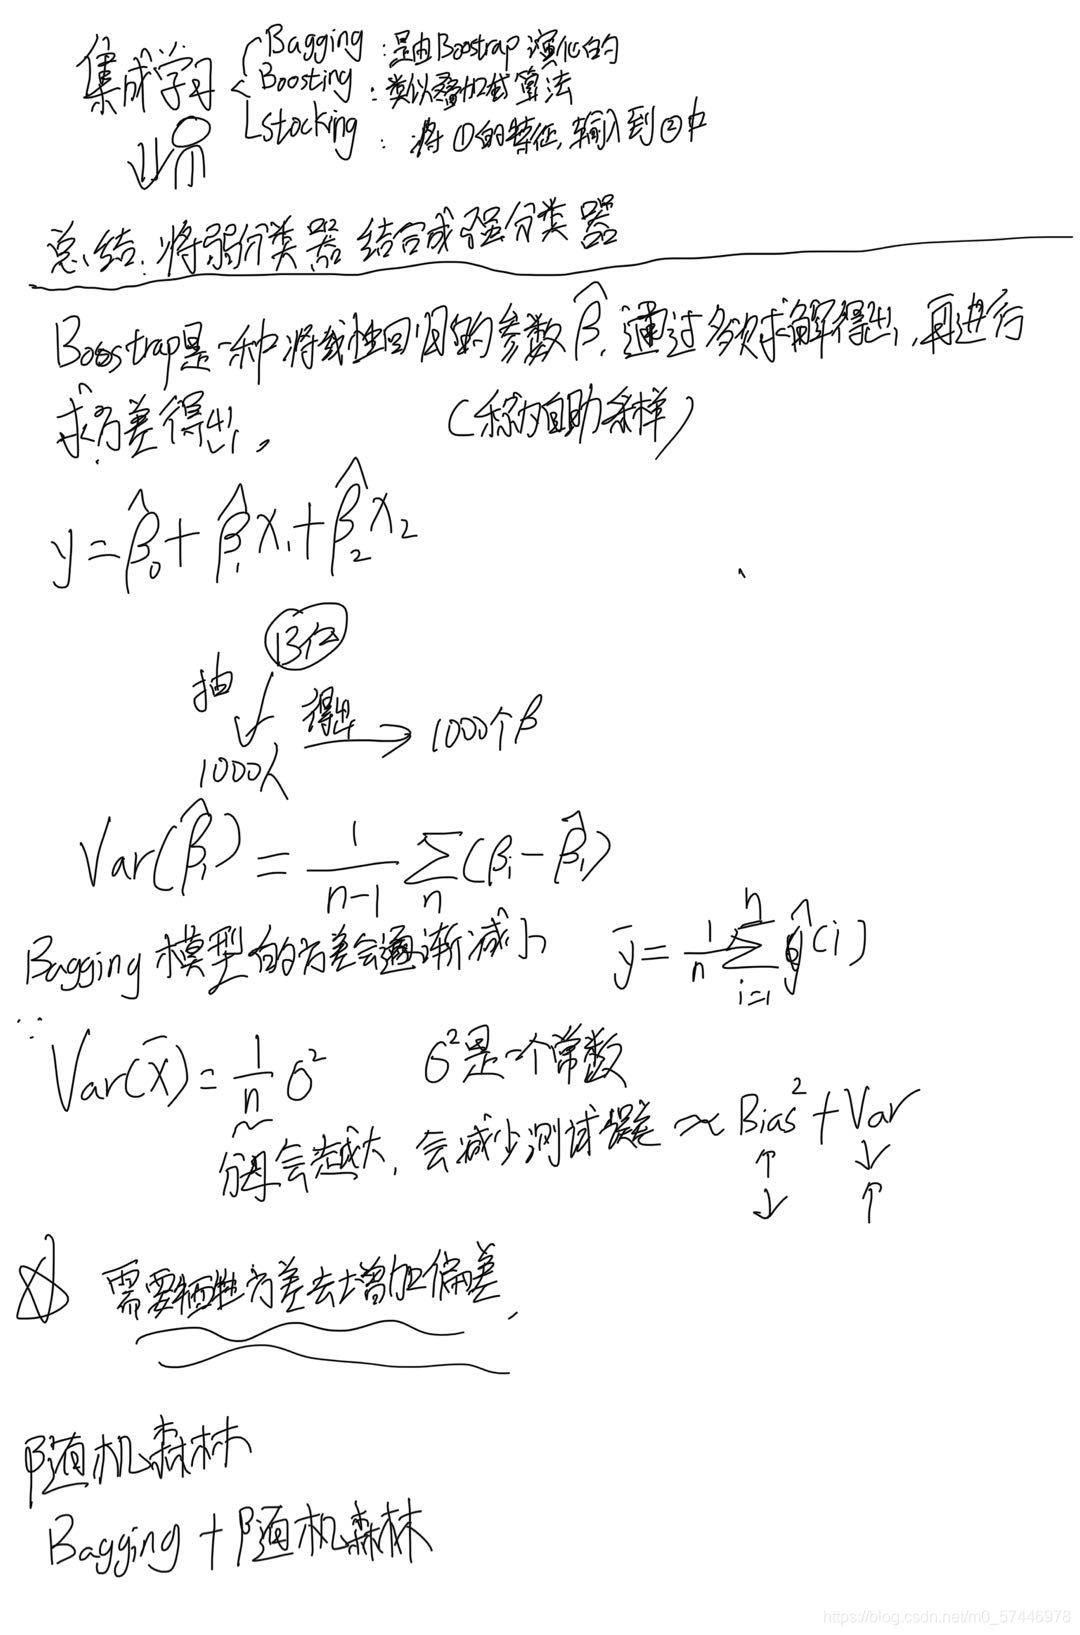 集成学习
Bagging：是由Boostrap演化的
Boosting：类似叠加式算法
Stocking：将①的特征,输入到②中
总结:将弱分类器结合成强分类器
Boostrap是一种将线性回归的参数β̂,通过多次求解得出,再进行
求方差得出。（称为自助采样）
y=β̂₀+β̂₁x₁+β̂₂x₂
13亿
抽
得出
1000人 → 1000个β
Var(β̂₁)=1/(n-1) Σn(βi-β̂₁)
Bagging模型的方差会逐渐减小 ȳ=1/n Σ(i=1→n) ŷ(i)
∵
Var(x̄)=1/n σ² σ²是一个常数
分母会越大,会减少测试误差≈Bias²+Var
↑ ↓
↓ ↑
☆ 需要牺牲方差去增加偏差.
随机森林
Bagging+随机森林
https://blog.csdn.net/m0_57446978